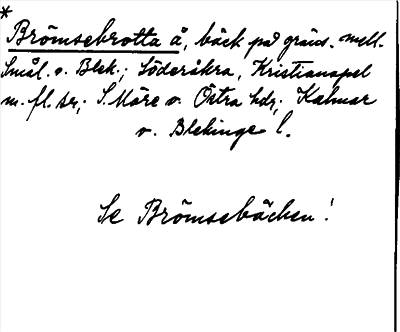 *
Brömsebrotta å, bäck på gräns. mell.
Smål. o. Blek.; Söderåkra, Kristianopel
m. fl. snr; S. Möre o. Östra hdr; Kalmar
o. Blekinge l.
Se Brömsebäcken!